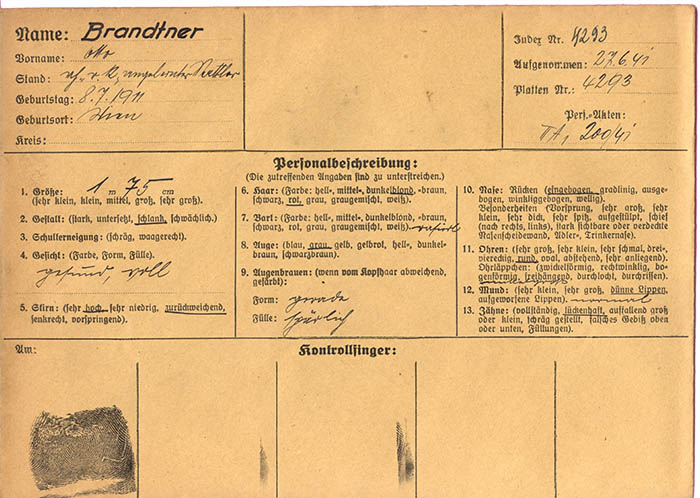 Name: Brandtner
Vorname: Otto
Stand: angelernter Sattler
Geburtstag: 8.7.1911
Geburtsort: Wien
Kreis:
Index Nr. 4293
Aufgenommen: 27.6.41
Platten Nr.: 4293
Pers.-Akten:
200/41
Personalbeschreibung:
(Die zutreffenden Angaben sind zu unterstreichen.)
1. Größe: 1 m 75 cm
(sehr klein, klein, mittel, groß, sehr groß).
2. Gestalt: (stark, untersetzt, schlank, schwächlich).
3. Schulterneigung: (schräg, waagerecht).
4. Gesicht: (Farbe, Form, Fülle).
gesund, voll
5. Stirn: (sehr hoch, sehr niedrig, zurückweichend,
senkrecht, vorspringend).
6. Haar: (Farbe: hell-, mittel-, dunkelblond, -braun,
schwarz, rot, grau, graugemischt, weiß).
7. Bart: (Farbe: hell-, mittel-, dunkelblond, -braun,
schwarz, rot, grau, graugemischt, weiß). rasiert
8. Auge: (blau, grau, gelb, gelbrot, hell-, dunkel-
braun, schwarzbraun).
9. Augenbrauen: (wenn vom Kopfhaar abweichend,
gefärbt).
Form: gerade
Fülle: spärlich
10. Nase: Rücken (eingebogen, gradlinig, ausge-
bogen, winkliggebogen, wellig).
Besonderheiten (Vorsprung, sehr groß, sehr
klein, sehr dick, sehr spitz, aufgestülpt, schief
(nach rechts, links), stark sichtbare oder verdeckte
Nasenscheidewand, Adler-, Trinkernase).
11. Ohren: (sehr groß, sehr klein, sehr schmal, drei-,
viereckig, rund, oval, abstehend, sehr anliegend).
Ohrläppchen: (zwickelförmig, rechtwinklig, bo-
genförmig, freihängend, durchlocht, durchrissen).
12. Mund: (sehr klein, sehr groß, dünne Lippen,
aufgeworfene Lippen). normal
13. Zähne: (vollständig, lückenhaft, auffallend groß
oder klein, schräg gestellt, falsches Gebiß oben
oder unten, Füllungen).
Am:
Kontrollfinger: